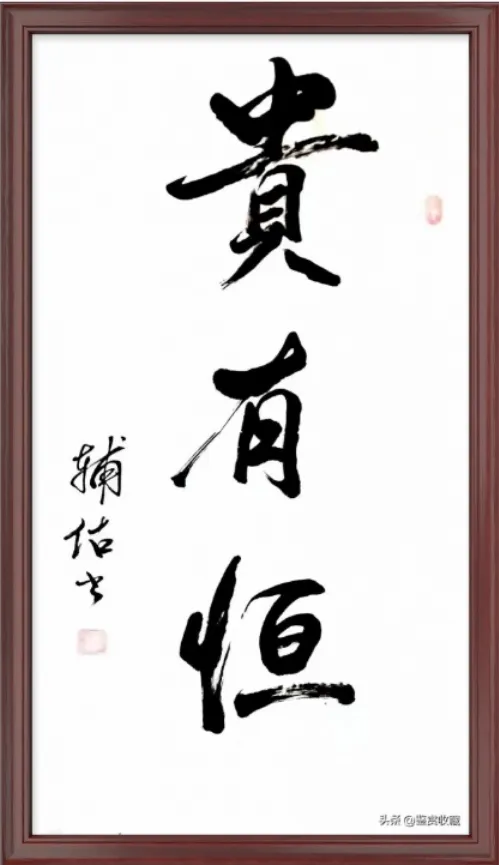 貴有恒
辅估书
头条 @鉴赏收藏